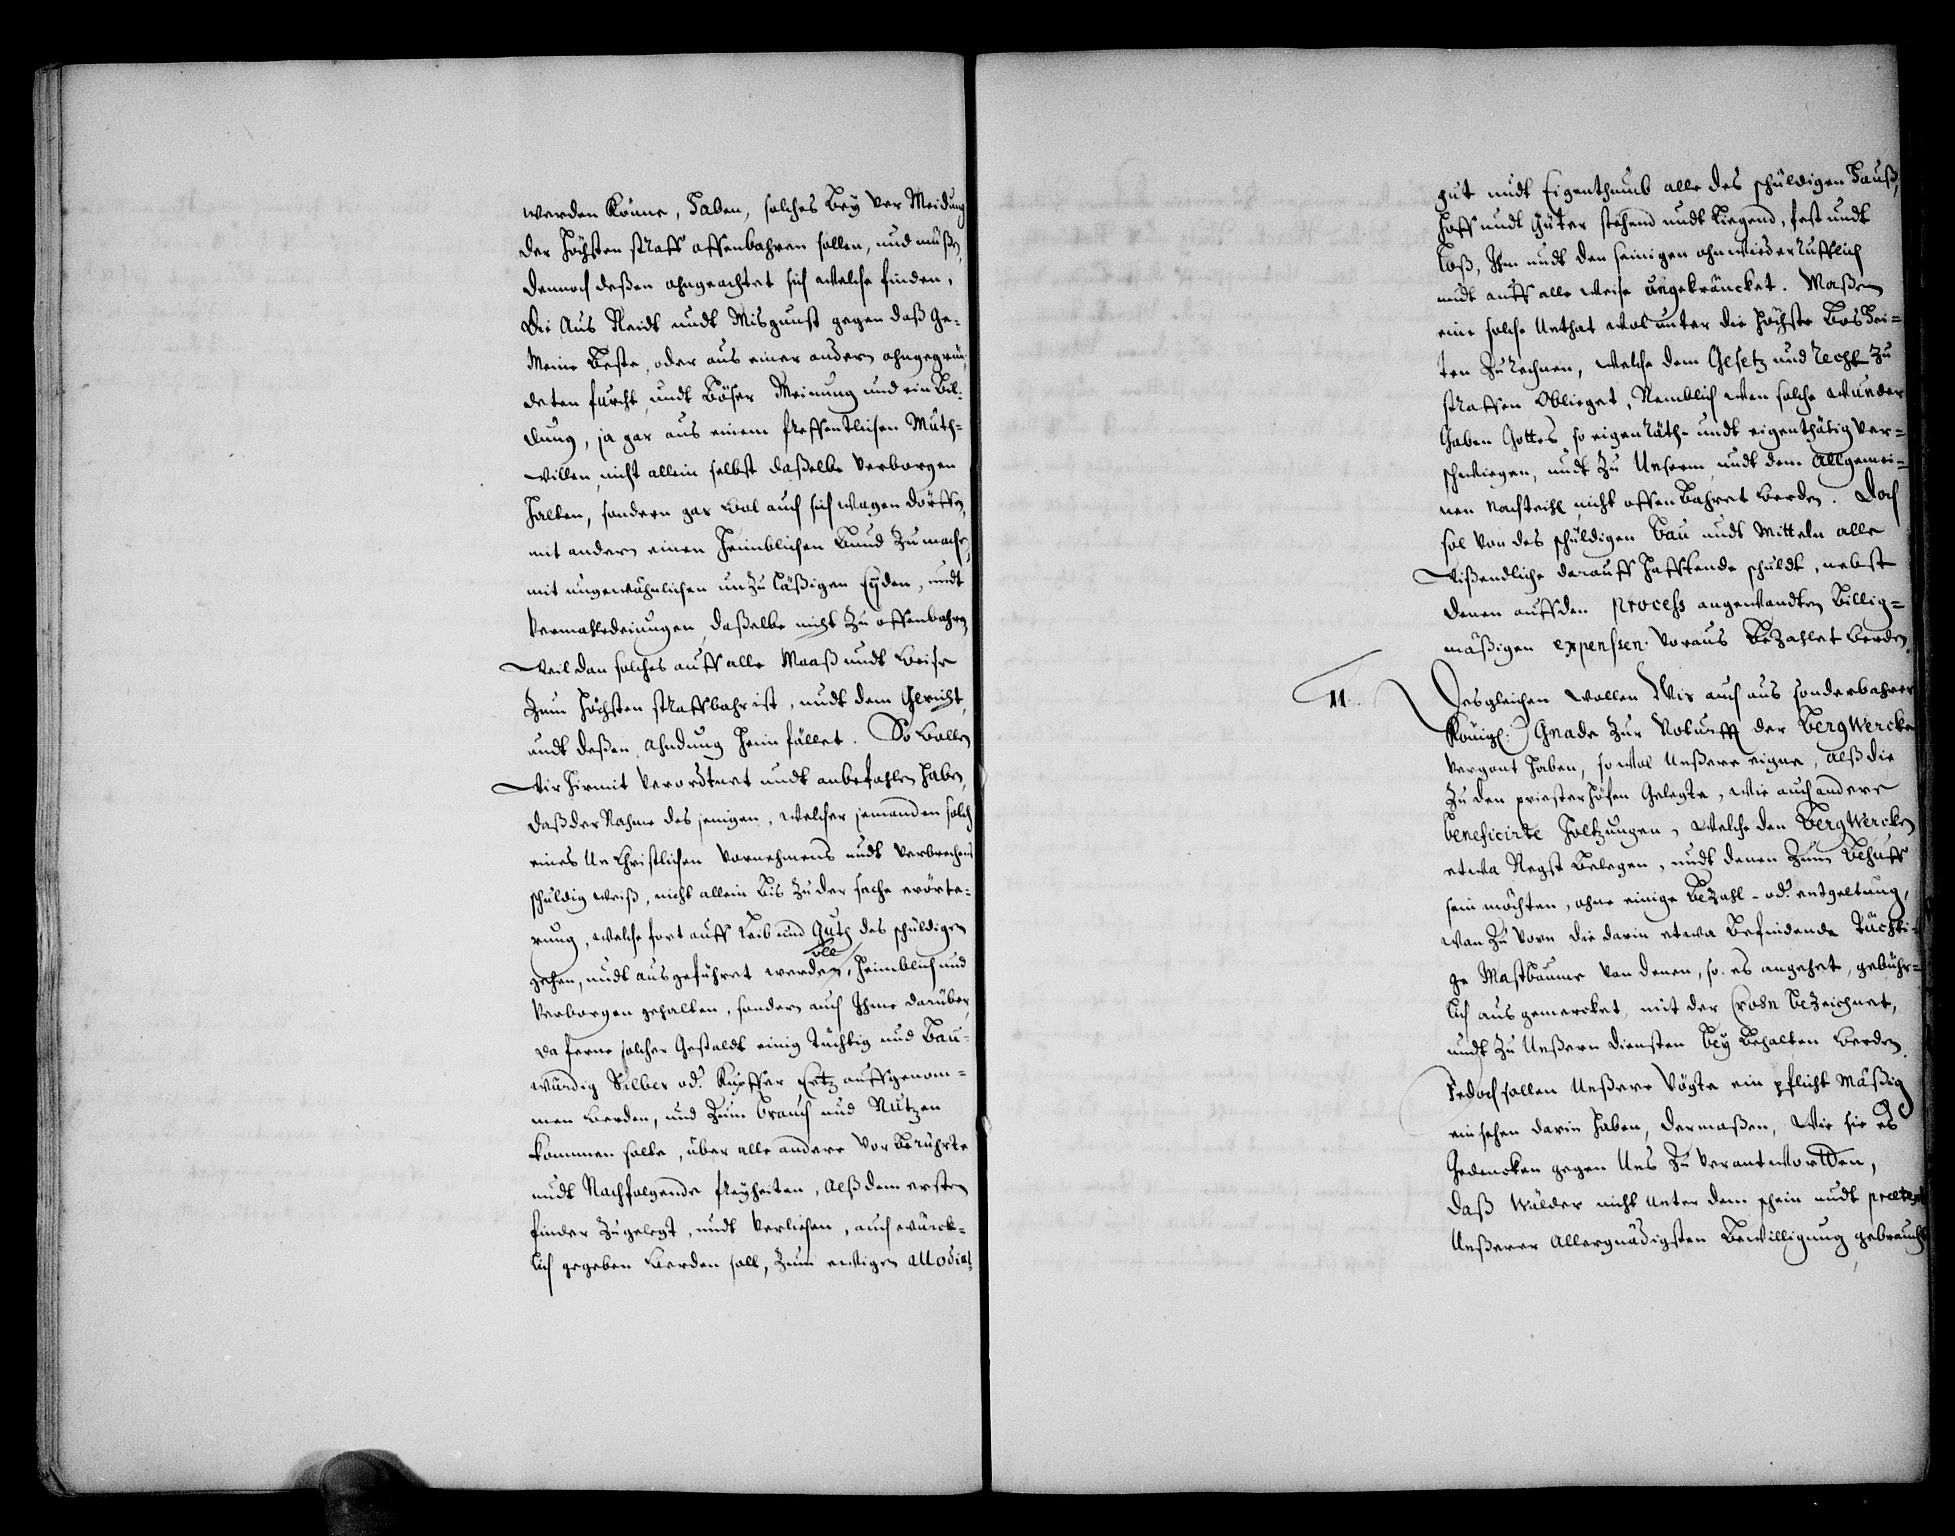 werden könne, haben, solches bey ver Meidung
der höchsten straff offenbahren sollen, und müßen,
dennoch deßen ohngeachtet sich welche finden,
die aus Neidt undt Misgunst gegen daß Ge-
Meine beste, oder aus einer andern ohngegrün-
deten furcht, undt böser Meinung und ein bil-
dung, ja gar aus einem freffentlichen Muth-
willen, nicht allein selbst daßelbe verborgen
halten, sondern gar wol auch sich wagen dörffen,
mit andern einen heimblichen bund zu machen,
mit ungewöhnlichen unzuläßigen Eyden, undt
vermaledeiungen, daßelbe nicht zu offenbahren,
weil dan solches auff alle Maaß undt weise
zum höchsten straffbahr ist, undt dem Gericht,
undt deßen ahndung heim fället. So wollen
wir hirmit verordtnet undt anbefohlen haben,
daß der Nahme des jenigen, welcher jemanden solch
eines Un Christlichen vornehmens undt verbrechens
schuldig weiß, nicht allein bis zu der sache erörte-
rung, welche fort auff Leib und Guth des schuldigen
gehen, undt ausgeführet werden solle, heimblich und
verborgen gehalten, sondern auch Ihme darüber,
da ferne solcher Gestaldt einig tüchtig und bau-
würdig Silber od. Kupffer Ertz auffgenom-
men werden, und zum brauch und Nutzen
kommen solte, über alle andere vor berührte
undt Nachfolgende freyheiten, alß dem ersten
finder zugelegt, undt verliehen, auch würck-
lich gegeben werden soll, zum ewigen allodial,
gut undt Eigenthumb alle des schuldigen hauß,
hoff undt Güter stehend undt liegend, fest undt
loß, Ihm undt den seinigen ohnwiederrufflich
undt auff alle weise ungekräncket. Maßen
eine solche Unthat wol unter die höchste bosshei-
ten zu rechnen, welche dem Gesetz und recht zu
straffen oblieget, Nemblich wen solche wunder
Gaben Gottes so eigen räth- undt eigenthätig ver-
schwiegen, undt zu Unserm, undt dem allgemei-
nen nachteihl nicht offenbahret werden. Doch
sol von des schuldigen bau undt Mitteln alle
wißendliche darauff hafftende schuldt, nebst
denen auff den process angewandten billig-
mäßigen expenssen voraus bezahlet werden.
11. Desgleichen wollen Wir auch aus sonderbahrer
Königl: Gnade zur Noturfft der bergwercke
vergönt haben, so wol Unßere eigne, alß die
zu den priesterhöfen Gelegte, wie auch andere
beneficirte holtzungen, welche den bergwercken
etwa Negst belegen, undt denen zum behuff
sein möchten, ohne einige bezahl- od. entgeltung,
wan zu vorn die darin etwa befindende tüchti-
ge Mastbäume von denen, so es angehet, gebühr-
lich ausgemercket, mit der Cron bezeichnet,
undt zu Unßern diensten bey behalten werden.
Jedoch sollen Unßere Vögte ein pflicht mäßig
ein sehen darin haben, dermaßen, wie sie es
Gedencken gegen Uns zu verantworten,
daß wälder nicht unter dem schein undt prætext
Unßerer allergnädigsten bewilligung gebraucht